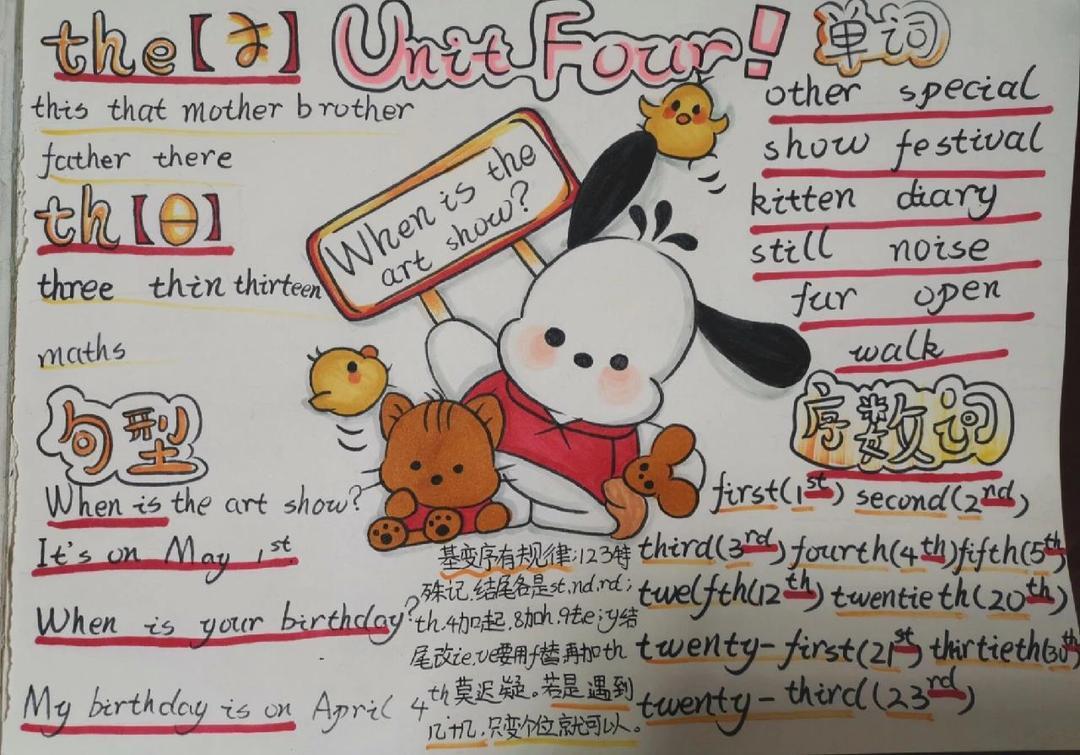 Unit Four!
the【ð】
this that mother brother
father there
th【θ】
three thin thirteen
maths
句型
When is the art show?
It's on May 1st
When is your birthday?
My birthday is on April 4th
When is the
art show?
单词
other special
show festival
kitten diary
still noise
fur open
walk
序数词
first(1st) second(2nd)
third(3rd) fourth(4th) fifth(5th)
twelfth(12th) twentieth(20th)
twenty-first(21st) thirtieth(30th)
twenty-third(23rd)
基变序有规律:123特
殊记,结尾各是st,nd,rd;
th.4加起,8加h,9去e;y结
尾改ie,ve要用f替再加th
莫迟疑。若是遇到
几十几,只变个位就可以。